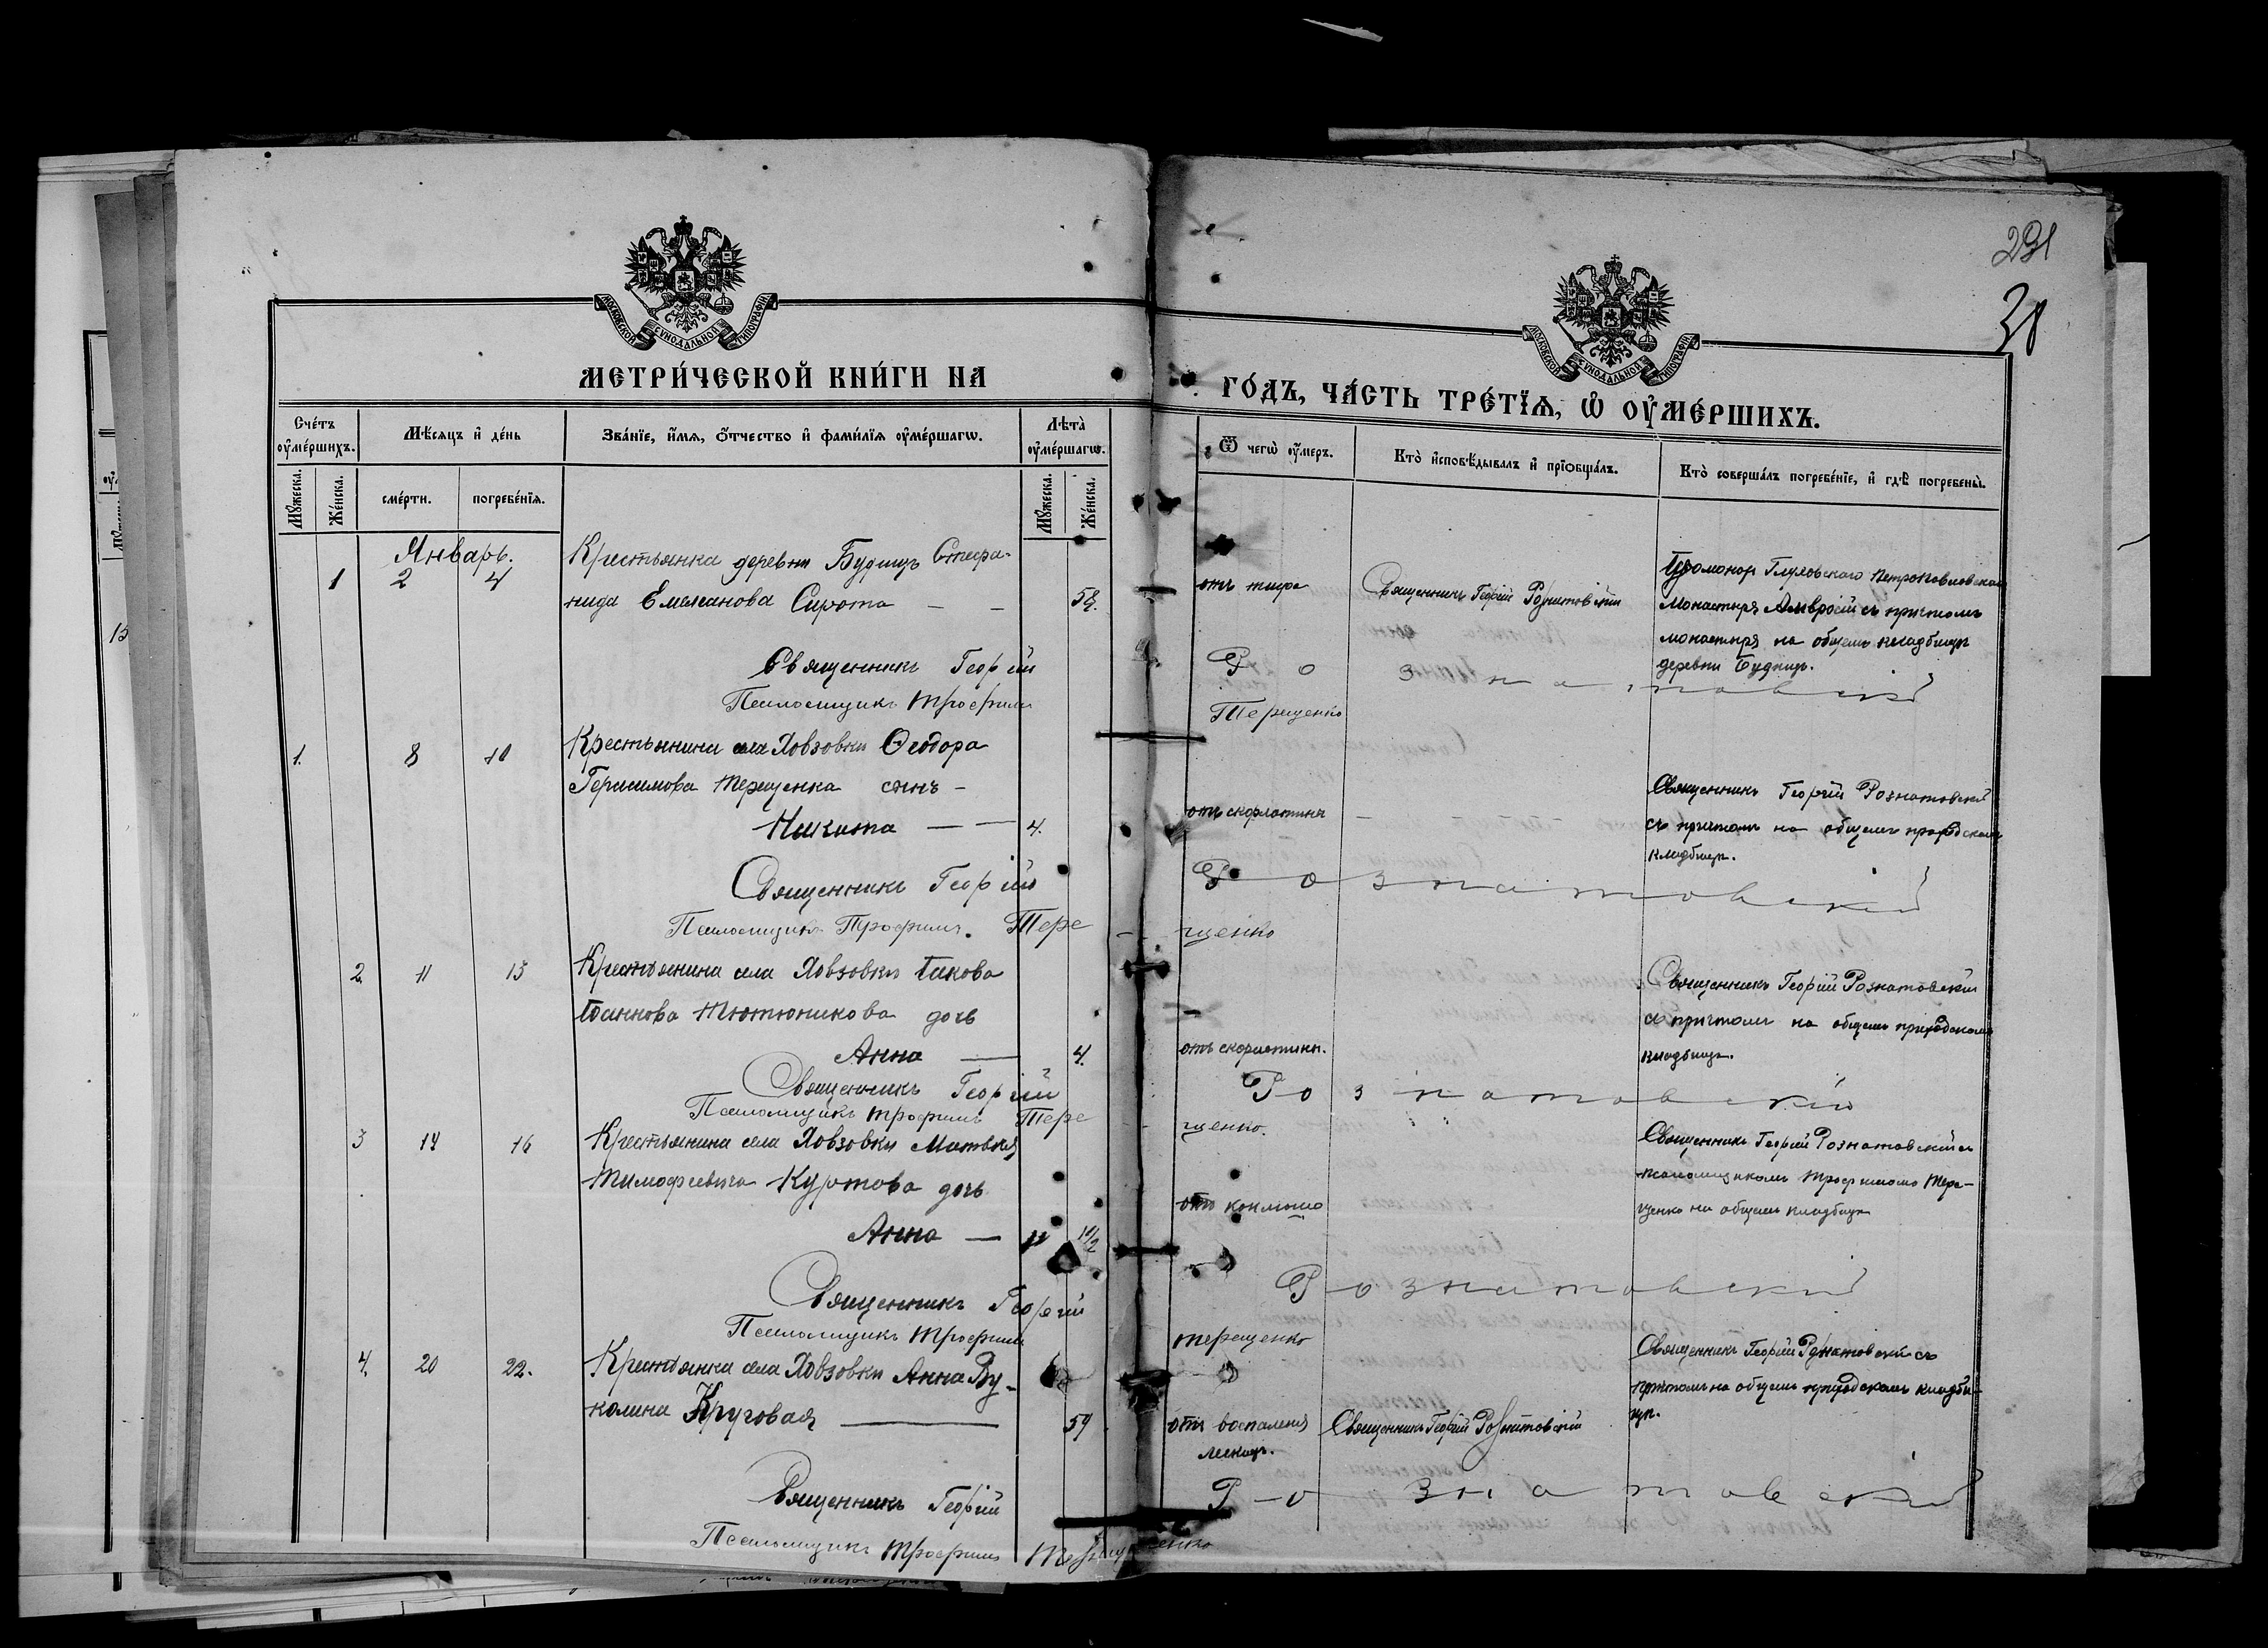 231
31
МОСКОВСКОЙ СѴНОДАЛЬНОЙ ТИПОГРАФІИ
МОСКОВСКОЙ СѴНОДАЛЬНОЙ ТИПОГРАФІИ
МЕТРИ́ЧЕСКОЙ КНИ́ГИ НА
ГО́ДЪ, ЧА́СТЬ ТРЕ́ТЇѦ, Ѡ҆ ОУ҆МЕ́РШИХЪ.
Сче́тъ оу҆ме́ршихъ.
Мѣ́сяцъ и҆ де́нь
Зва́нїе, и҆́мѧ, ѻ҆́тчество и҆ фами́лїѧ оу҆ме́ршагѡ.
Лѣ́та оу҆ме́ршагѡ.
Ѿ чегѡ̀ оу҆́меръ.
Кто̀ и҆сповѣ́дывалъ и҆ прїѻбща́лъ.
Кто̀ соверша́лъ погребе́нїе, и҆ гдѣ̀ погребены̀.
Мꙋ́жеска.
Же́нска.
сме́рти.
погребе́нїѧ.
Мꙋ́жеска.
Же́нска.
Январь.
1 2 4
Крестьянка деревни Будищъ Стефа-
нида Емелианова Сирота — —
отъ тифа
Священникъ Георгій Рознатовскій
Іеромонах Глуховскаго Петропавловскаго
монастыря Амвросій съ причтомъ
монастыря на общемъ кладбищѣ
деревни Будищъ.
Священникъ Георгій Рознатовскій
Псаломщикъ Трофимъ Терещенко
1. 8 10
Крестьянина села Ховзовки Ѳеодора
Герасимова Терещенка сынъ —
Никита — — 4.
отъ скарлатины
Священникъ Георгій Рознатовскій
съ причтомъ на общемъ приходскомъ
кладбищѣ.
Священникъ Георгій Рознатовскій
Псаломщикъ Трофимъ. Терещенко
2 11 13
Крестьянина села Ховзовки Іакова
Іоаннова Тютюникова дочь
Анна — 4.
отъ скарлатины.
Священникъ Георгій Рознатовскій
съ причтомъ на общемъ приходскомъ
кладбищѣ.
Священникъ Георгій Рознатовскій
Псаломщикъ Трофимъ Терещенко.
3 14 16
Крестьянина села Ховзовки Матвѣя
Тимофеевича Куртова дочь
Анна —
отъ коклюша
Священникъ Георгій Рознатовскій съ
псаломщикомъ Трофимомъ Тере-
щенко на общемъ кладбищѣ
Священникъ Георгій Рознатовскій
Псаломщикъ Трофимъ Терещенко
4. 20 22.
Крестьянка села Ховзовки Анна Ву-
колина Круговая — 59
отъ воспаленія
легкихъ.
Священникъ Георгій Рознатовскій
Священникъ Георгій Рознатовскій съ
причтомъ на общемъ приходскомъ кладби-
щѣ.
Священникъ Георгій Рознатовскій
Псаломщикъ Трофимъ Терещенко